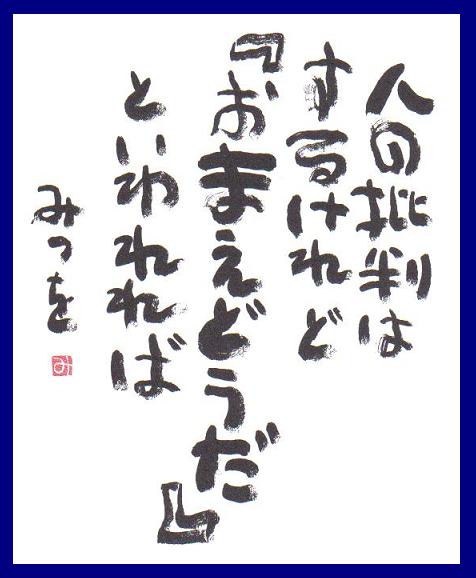 人の批判は
するけれど
『おまえどうだ』
といわれれば
みつを
み